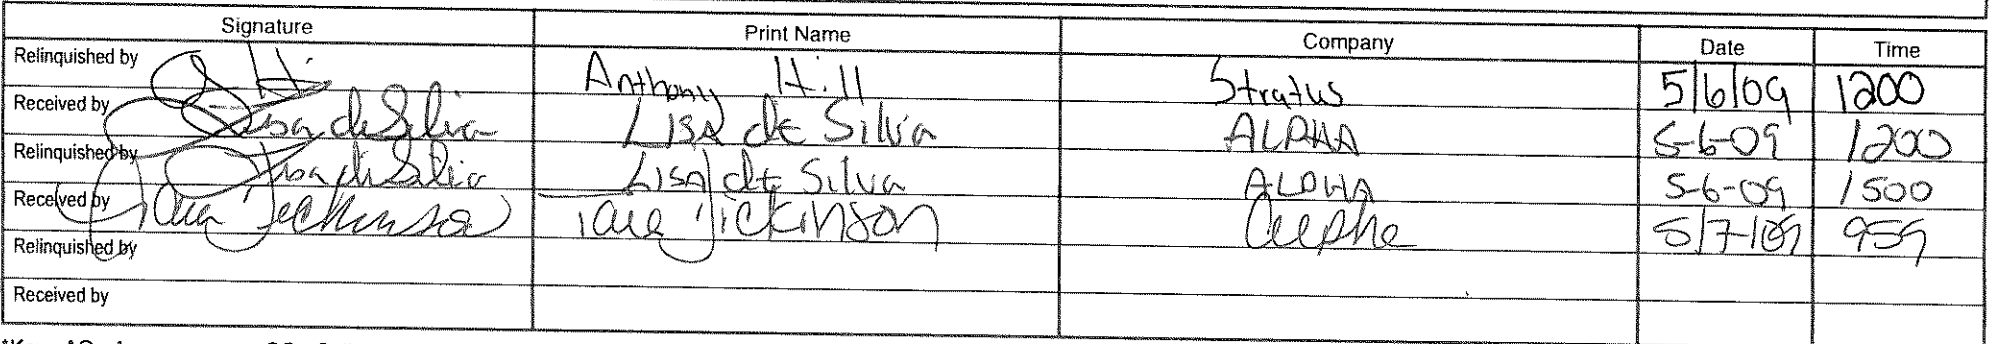 Signature Print Name Company Date Time
Relinquished by Anthony Hill Stratus 5/6/09 1200
Received by Lisa de Silva Lisa de Silva ALPHA 5-6-09 1200
Relinquished by Lisa de Silva Lisa de Silva ALPHA 5-6-09 1500
Received by Dickinson Dickinson Alpha 5/7/09 959
Relinquished by
Received by